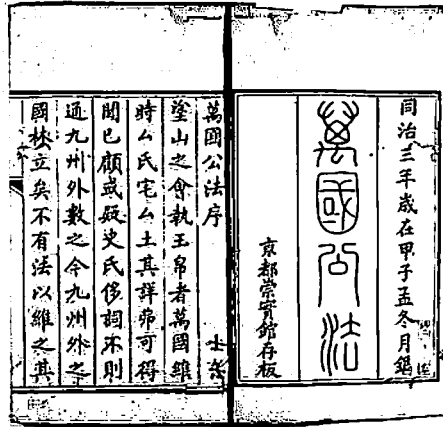 同治三年歲在甲子孟冬月鐫
萬國公法
京都崇實館存板
萬國公法序
塗山之會執玉帛者萬國維
時厶氏宅厶土其詳弗可得
聞已顧或疑史氏侈詞不則
通九州外數之今九州外之
國林立矣不有法以維之其